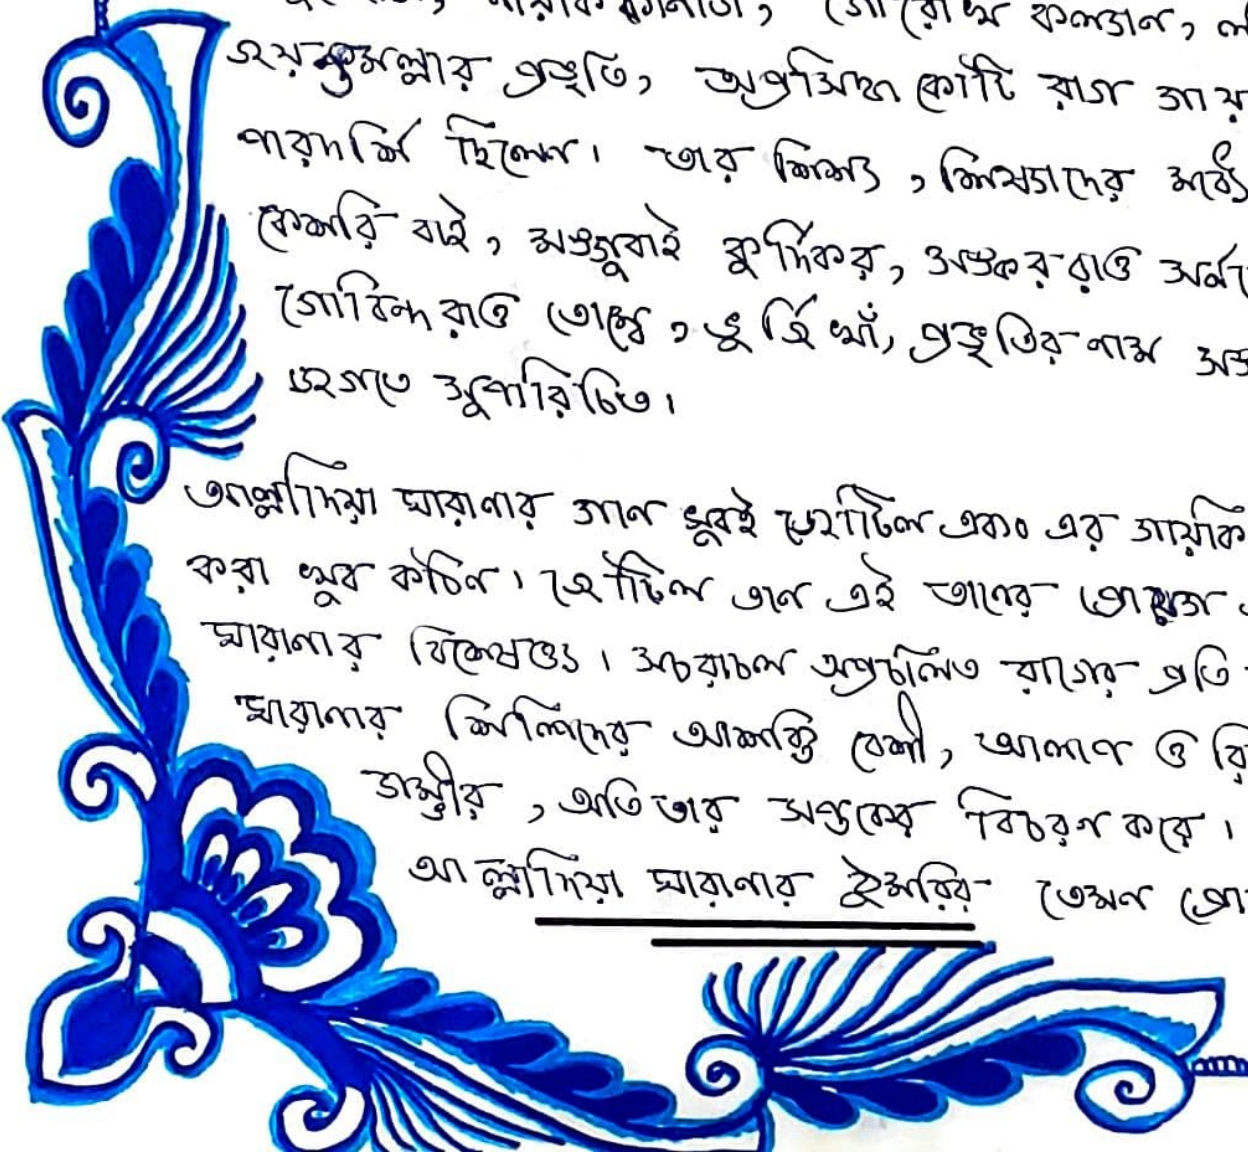 নায়কি কানাড়া, গোরোখ কল্যান,
জয়ন্তমল্লার প্রভৃতি, অপ্রসিদ্ধ কোটি রাগ গায়
পারদর্শি ছিলেন। তার শিশ্য, শিষ্যাদের মধ্যে
কেশরি বাই, মঙ্গুবাই কুর্দিকর, শঙ্কর রাও
গোবিন্দ রাও তোম্বে, ভুর্জি খাঁ, প্রভৃতির নাম
জগতে সুপরিচিত।
আল্লাদিয়া ঘারানার গান খুবই জোটিল এবং এর গায়কি
করা খুব কঠিন। জোটিল তান এই তানের প্রোয়োগ
ঘারানার বিশেষত্ত্ব। সচরাচল অপ্রচলিত রাগের প্রতি
ঘারানার শিল্পিদের আশক্তি বেশী, আলাপ ও
গম্ভীর, অতি তার সপ্তকের বিচরণ করে।
আল্লাদিয়া ঘারানার ঠুমরির তেমন